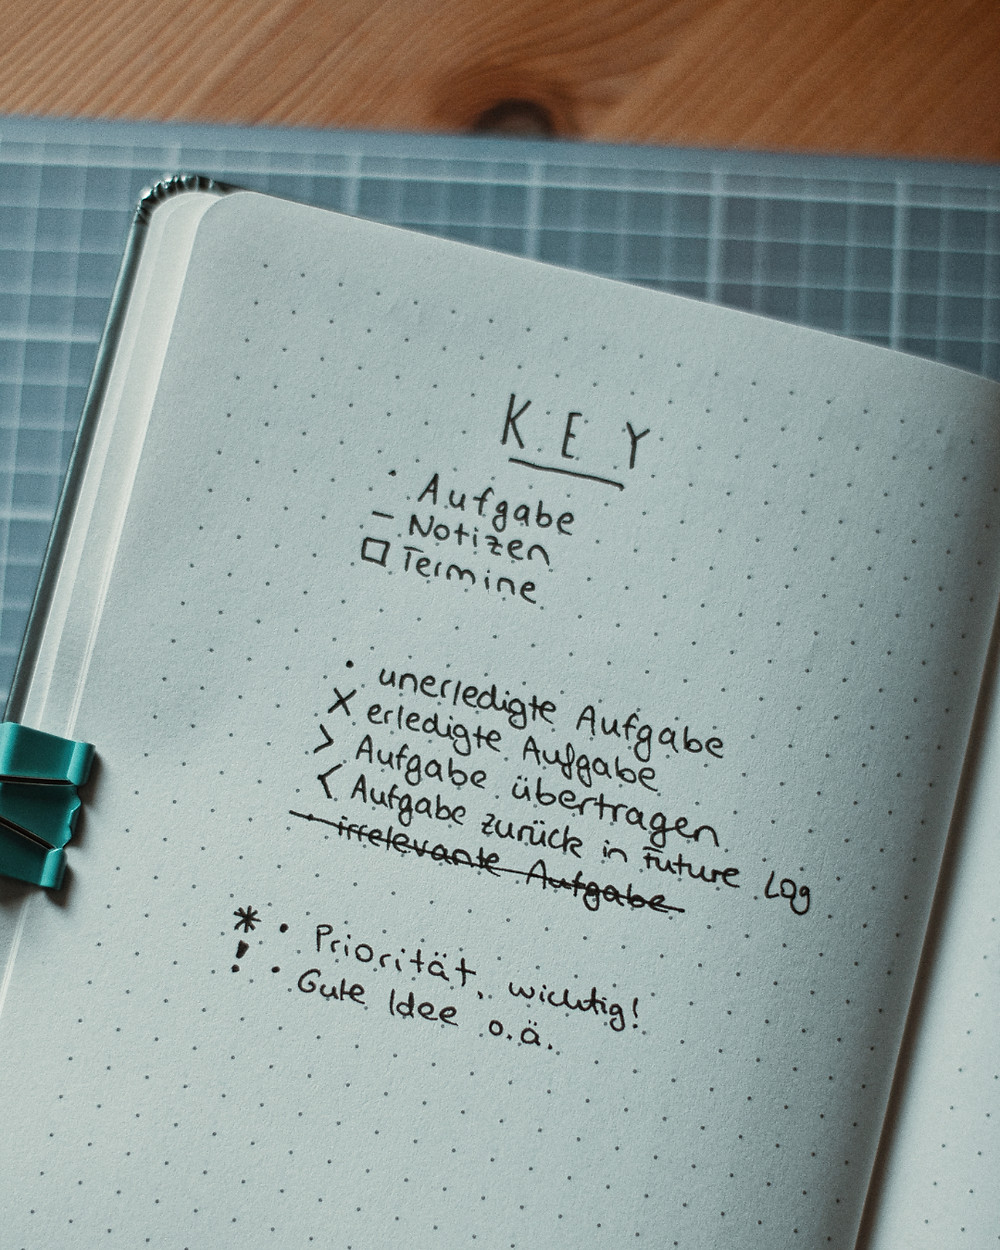 KEY
· Aufgabe
– Notizen
□ Termine
· unerledigte Aufgabe
X erledigte Aufgabe
> Aufgabe übertragen
< Aufgabe zurück in Future Log
· irrelevante Aufgabe
* · Priorität, wichtig!
! · Gute Idee o.ä.